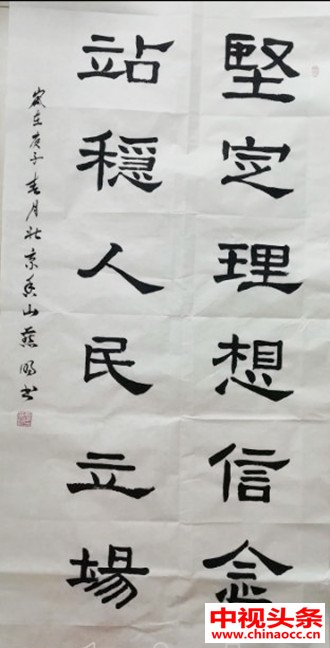 堅定理想信念
站穩人民立場
歲在庚子春月北京香山燕鳴書
中视头条
www.chinaocc.cn